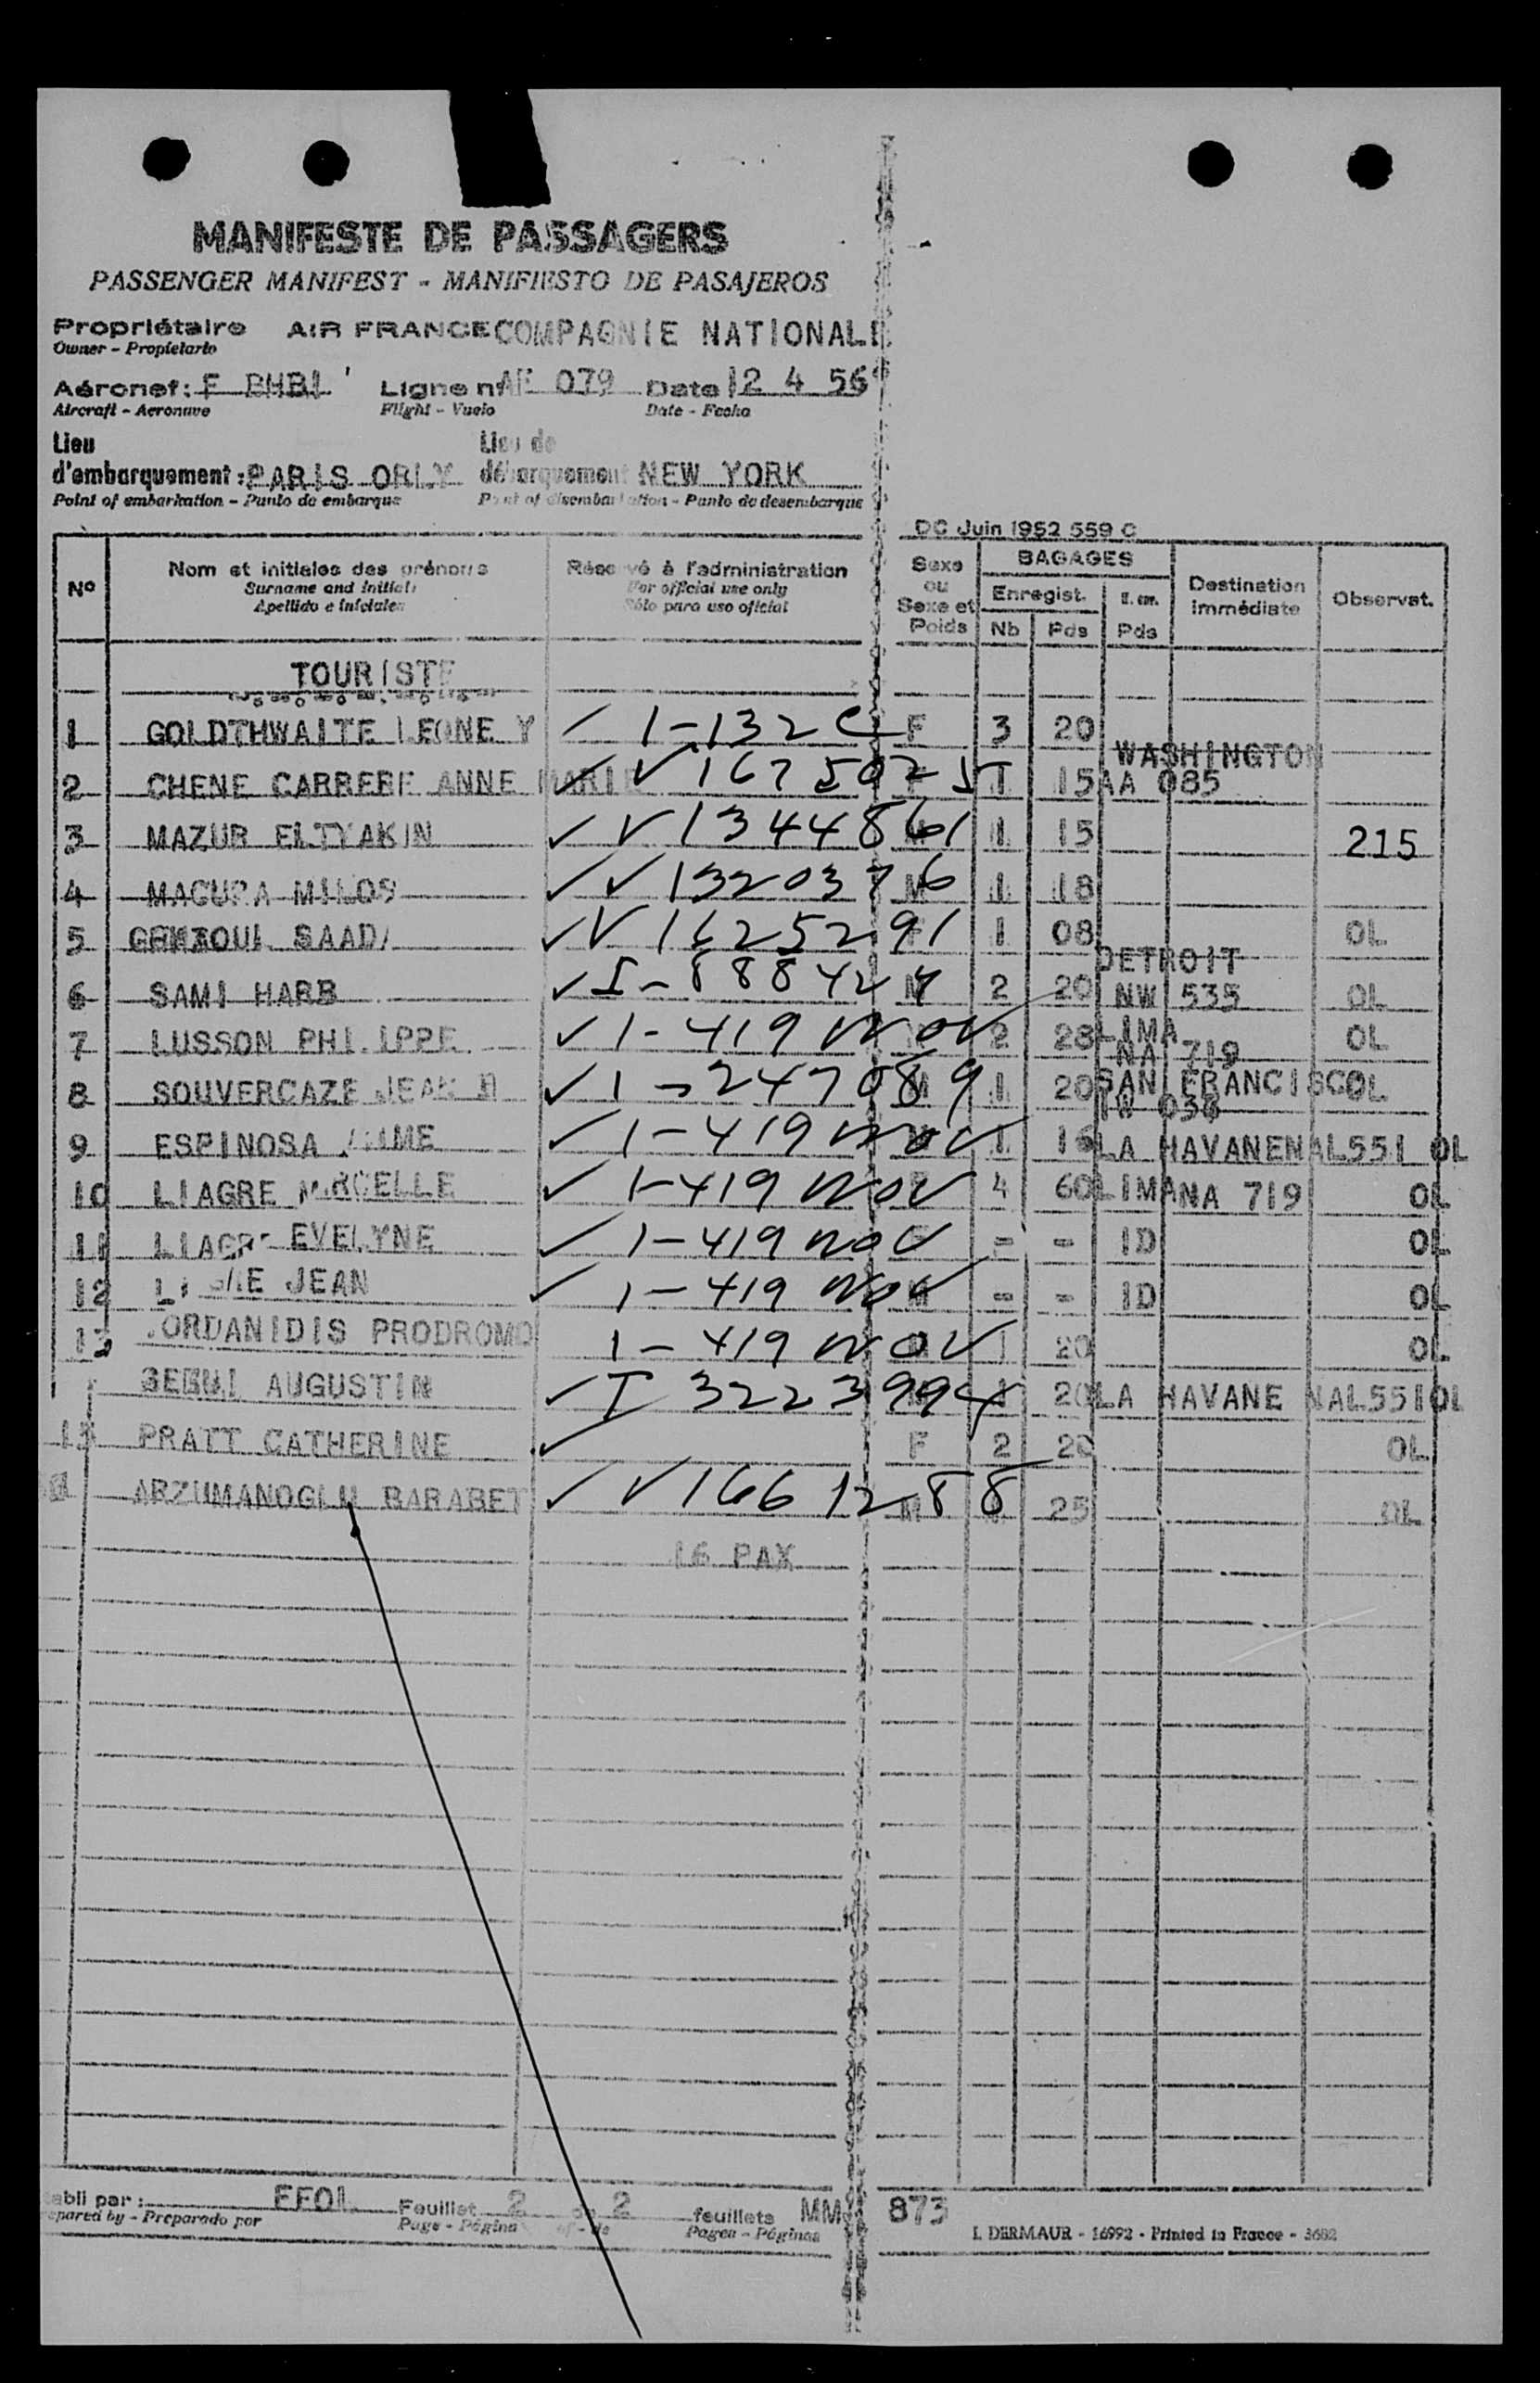 MANIFESTE DE PASSAGERS
PASSENGER MANIFEST - MANIFIESTO DE PASAJEROS
Propriétaire AIR FRANCE COMPAGNIE NATIONALE
Owner - Propietario
Aéronef: F BHBI Ligne n° AF 079 Date 12 4 56
Aircraft - Aeronave Flight - Vuelo Date - Fecha
Lieu Lieu de
d'embarquement: PARIS ORLY débarquement NEW YORK
Point of embarkation - Punto de embarque Point of disembarkation - Punto de desembarque
DC Juin 1952 559 C
No Nom et initiales des prénoms Réservé à l'administration Sexe ou Sexe et Poids BAGAGES Destination immédiate Observat.
Surname and initials For official use only Enregist. Nb Pds Pds
Apellido e iniciales Sólo para uso oficial
TOURISTE
1 GOLDTHWAITE LEONE Y 1-132 C F 3 20
WASHINGTON
2 CHENE CARRERE ANNE MARIE V 1675025 1 15 AA 085
3 MAZUR ELTYAKIN V 1344861 1 15 215
4 MACURA MILOS V 1320376 M 1 18
5 SAADI V 1625291 1 08 OL
DETROIT
6 SAMI HARB I-888424 M 2 20 NW 535 OL
7 LUSSON PHILIPPE 1-419 NOV 2 28 LIMA NA 719 OL
8 SOUVERCAZE JEAN 1-247089 M 1 20 SAN FRANCISCO OL
9 ESPINOSA 1-419 NOV 1 16 LA HAVANE NAL551 OL
10 LIAGRE MARCELLE 1-419 NOV 4 60 LIMA NA 719 OL
11 LIAGRE EVELYNE 1-419 NOV - - ID OL
12 LIAGRE JEAN 1-419 NOV M - - ID OL
13 JORDANIDIS PRODROMO 1-419 NOV 1 20 OL
AUGUSTIN I 3223994 1 20 LA HAVANE NAL551 OL
15 PRATT CATHERINE F 2 20 OL
ARZUMANOGLU BARABET V 1661288 M 25 OL
16 PAX
abli par: EFOL Feuillet 2 2 feuillets MM 873
epared by - Preparado por Page - Página of - de Pages - Páginas
I. DERMAUR - 16992 - Printed in France - 3682